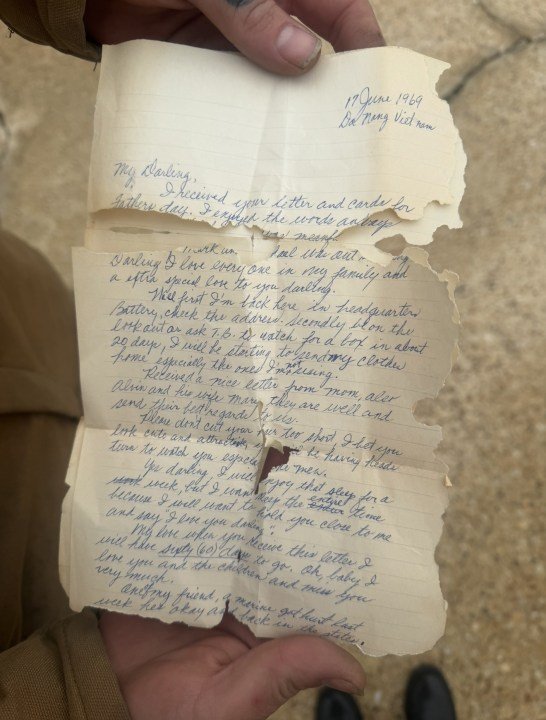 17 June 1969
Da Nang Vietnam
My Darling,
I received your letter and cards for
Fathers day. I enjoyed the words
was
out
Darling I love every one in my family and
a extra special love to you darling.
Well first I'm back here in headquarters
Battery, check the address. Secondly be on the
look out or ask T.B. to watch for a box in about
20 days, I will be starting to send my clothes
home especially the ones I'm not using.
Received a nice letter from mom, also
Alvin and his wife Mary they are well and
send their best regards to us.
Please don't cut your hair too short I bet you
look cute and be having heads
turn to watch you the men.
Yes darling, I will enjoy that sleep for a
week, but I want keep the entire time
because I will want to hold you close to me
and say I love you darling.
My love when you receive this letter I
will have sixty (60) days to go. Oh, baby I
love you and the children and miss you
very much.
One my friend, a marine got hurt last
week hes okay and back in the states.